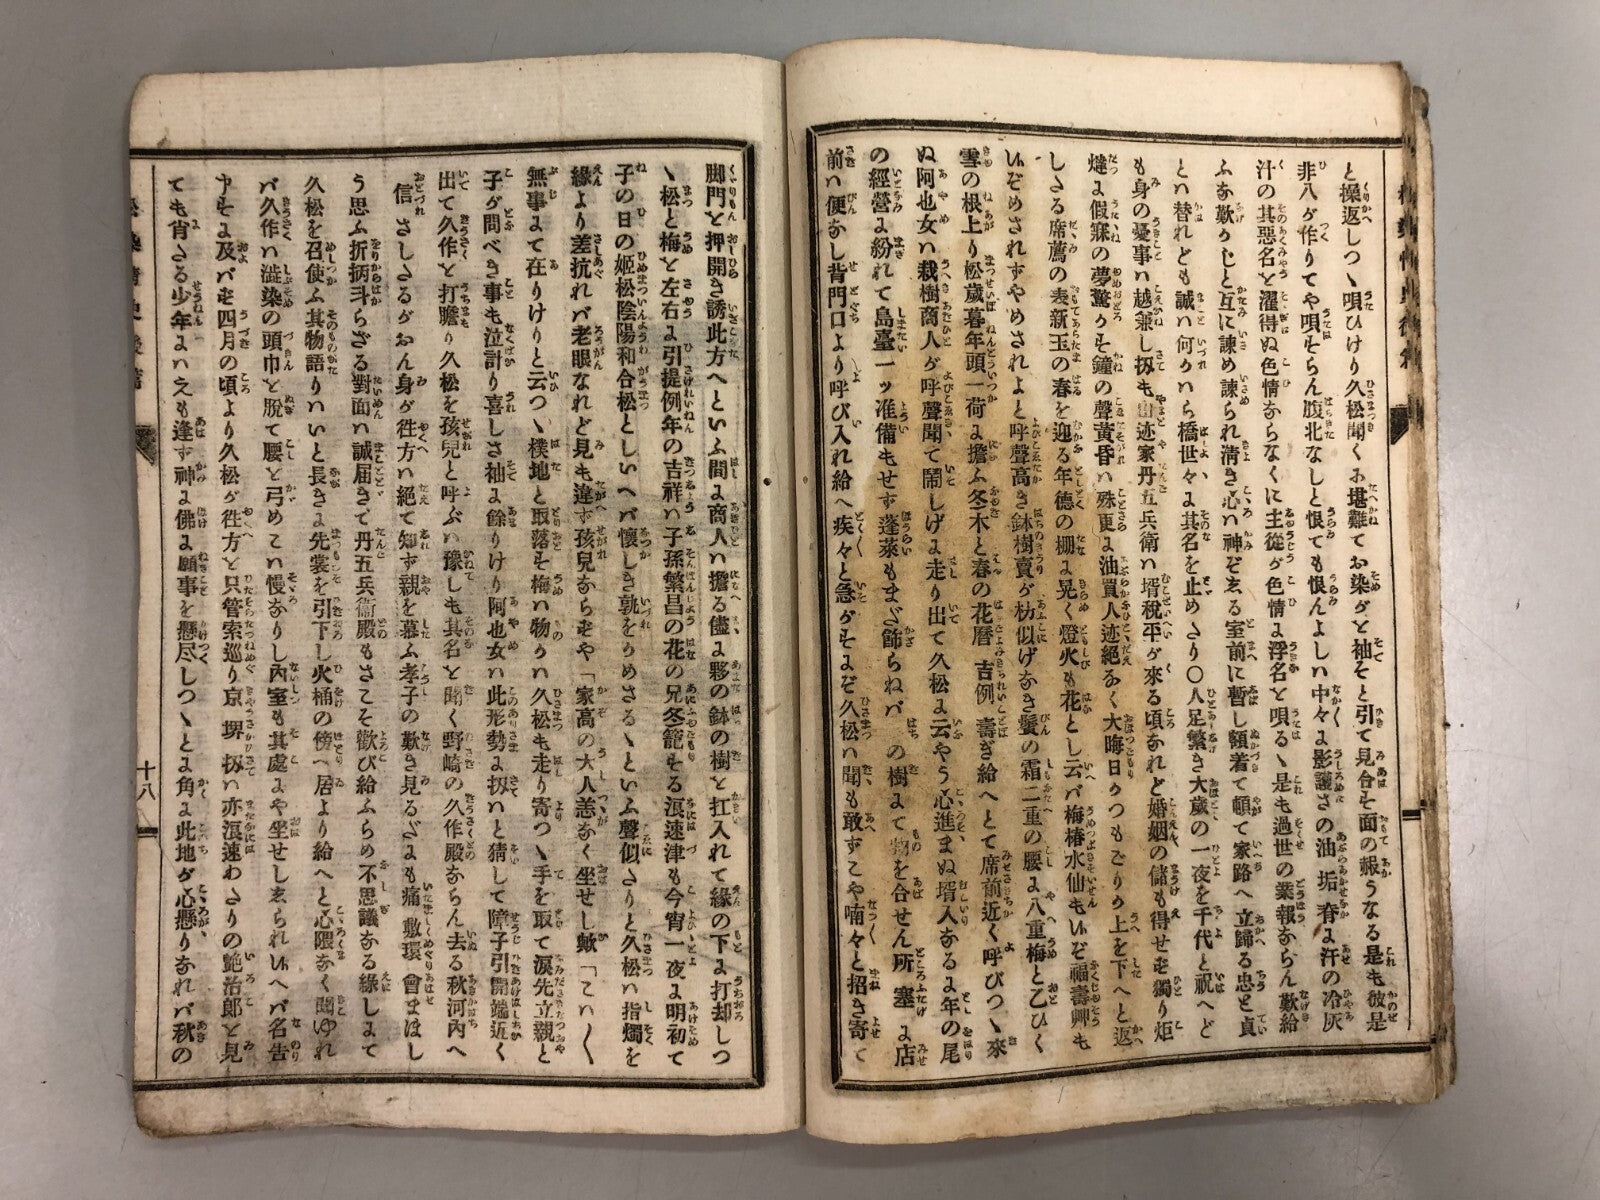 と操返しつヽ唄ひけり久松聞くお堪難てお染がと袖そと引て見合す面の赧うなる是も彼是
非八が作りてや唄すらん腹北なしと恨ても恨んよしハ中々よ影護さの油垢脊よ汗の冷灰
汁の其惡名と濯得ぬ色情ならなくに主從が色情よ浮名と唄るヽ是も過世の業報ならん歎給
ふな歎かじと互に諫め諫られ清き心ハ神ぞゑる室前に暫し額着て頓て家路へ立歸る忠と貞
とハ替れども誠ハ何かハら橋世々よ其名を止めたり〇人足繁き大歳の一夜を千代と祝へど
も身の憂事ハ越兼し扨も山迹家丹五兵衛ハ壻税平が來る頃なれど婚姻の儲も得せず獨り炬
燵よ假寐の夢驚かす鐘の聲黄昏ハ殊更よ油買人迹絕なく大晦日かつもごりか上を下へと返
しさる席薦の表新玉の春を迎る年德の棚よ晃く燈火も花とし云バ梅椿水仙もいぞ福壽艸も
いぞめされずやめされよと呼聲高き鉢樹賣が枋似げなき鬢の霜二重の腰よ八重梅と乙ひく
雪の根上り松歲暮年頭一荷よ擔ふ冬木と春の花曆吉例壽ぎ給へとて席前近く呼びつヽ來
ぬ阿也女ハ栽樹商人が呼聲聞て鬧しげよ走り出て久松よ云やう心進まぬ壻入なるよ年の尾
の經營よ紛れて島臺一ッ准備もせず蓬萊もまだ飾らねバの樹まて物を合せん所塞よ店
前ハ便なし背門口より呼び入れ給へ疾々と急がすよぞ久松ハ聞も敢ずこや喃々と招き寄て
脚門と押開き誘此方へといふ間よ商人ハ擔る儘よ夥の鉢の樹と扛入れて緣の下よ打却しつ
ヽ松と梅と左右よ引提例年の吉祥ハ子孫繁昌の花の兄冬籠する浪速津も今宵一夜よ明初て
子の日の姬松陰陽和合松としいへバ懷しき孰をかめさるヽといふ聲似たりと久松ハ指燭を
緣より差抗れバ老眼なれど見も違ず孩兒からずや「家高の大人恙なく坐せし歟「こハ〱
無事よて在りけりと云つヽ撲地と取落す梅ハ物かハ久松も走り寄つヽ手を取て淚先立親と
子が問べき事も泣計り喜しさ袖よ餘りけり阿也女ハ此形勢よ扨ハと猜して障子引開端近く
出て久作と打瞻り久松を孩兒と呼ぶハ豫しも其名と聞く野崎の久作殿ならん去る秋河內へ
信さしたるがおん身が徃方ハ絕て知ず親を慕ふ孝子の歎き見るだよも痛敷環會まほし
う思ふ折柄斗らざる對面ハ誠屆きて丹五兵衞殿もさこそ歡び給ふらめ不思議なる緣しまて
久松を召使ふ其物語りハいと長きよ先裳を引下し火桶の傍へ居より給へと心隈なく聞ゆれ
バ久作ハ澁染の頭巾と脫て腰と弓めこハ慢なりし內室も其處よや坐せしゑられいへバ名告
中すよ及バず四月の頃より久松が徃方と只管索巡り京堺扨ハ亦浪速わたりの艶冶郞と見
ても肯たる少年よハえも逢ず神よ佛よ願事を懸尽しつヽとよ角よ此地が心懸りなれバ秋の
十八